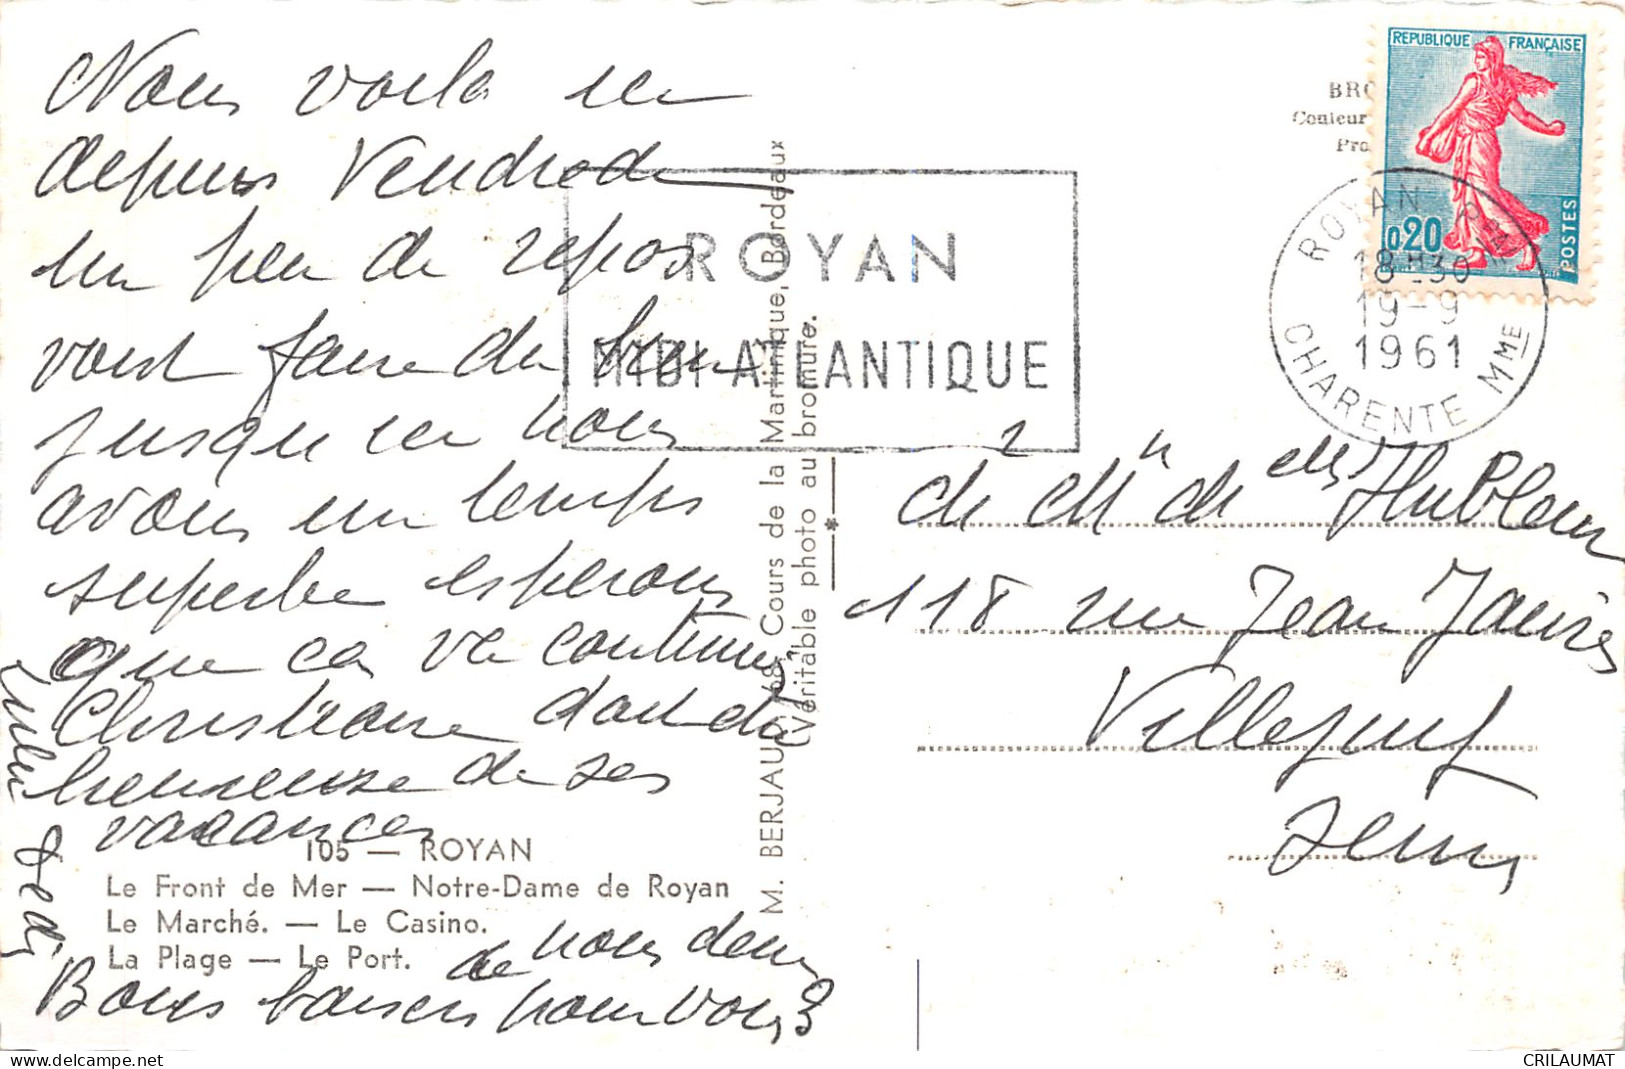 Nous voila ici
depuis Vendredi
un peu de repos
vont faire du bien
jusqu'ici nous
avons un temps
superbe esperons
que ca va continuer
Christiane doit etre
heureuse de ses
vacances
105 — ROYAN
Le Front de Mer — Notre-Dame de Royan
Le Marché. — Le Casino.
La Plage — Le Port.
de nous deux
Bons baisers pour vous 3
M. BERJAUD, 68, Cours de la Martinique, Bordeaux
(Véritable photo au bromure.
ROYAN
MIDI ATLANTIQUE
BRO
Couleur
Pro
REPUBLIQUE FRANÇAISE
0,20
POSTES
ROYAN PAL
18 H 30
19-9
1961
CHARENTE MME
118 rue Jean Jaurès
Villejuif
Seine
CRILAUMAT